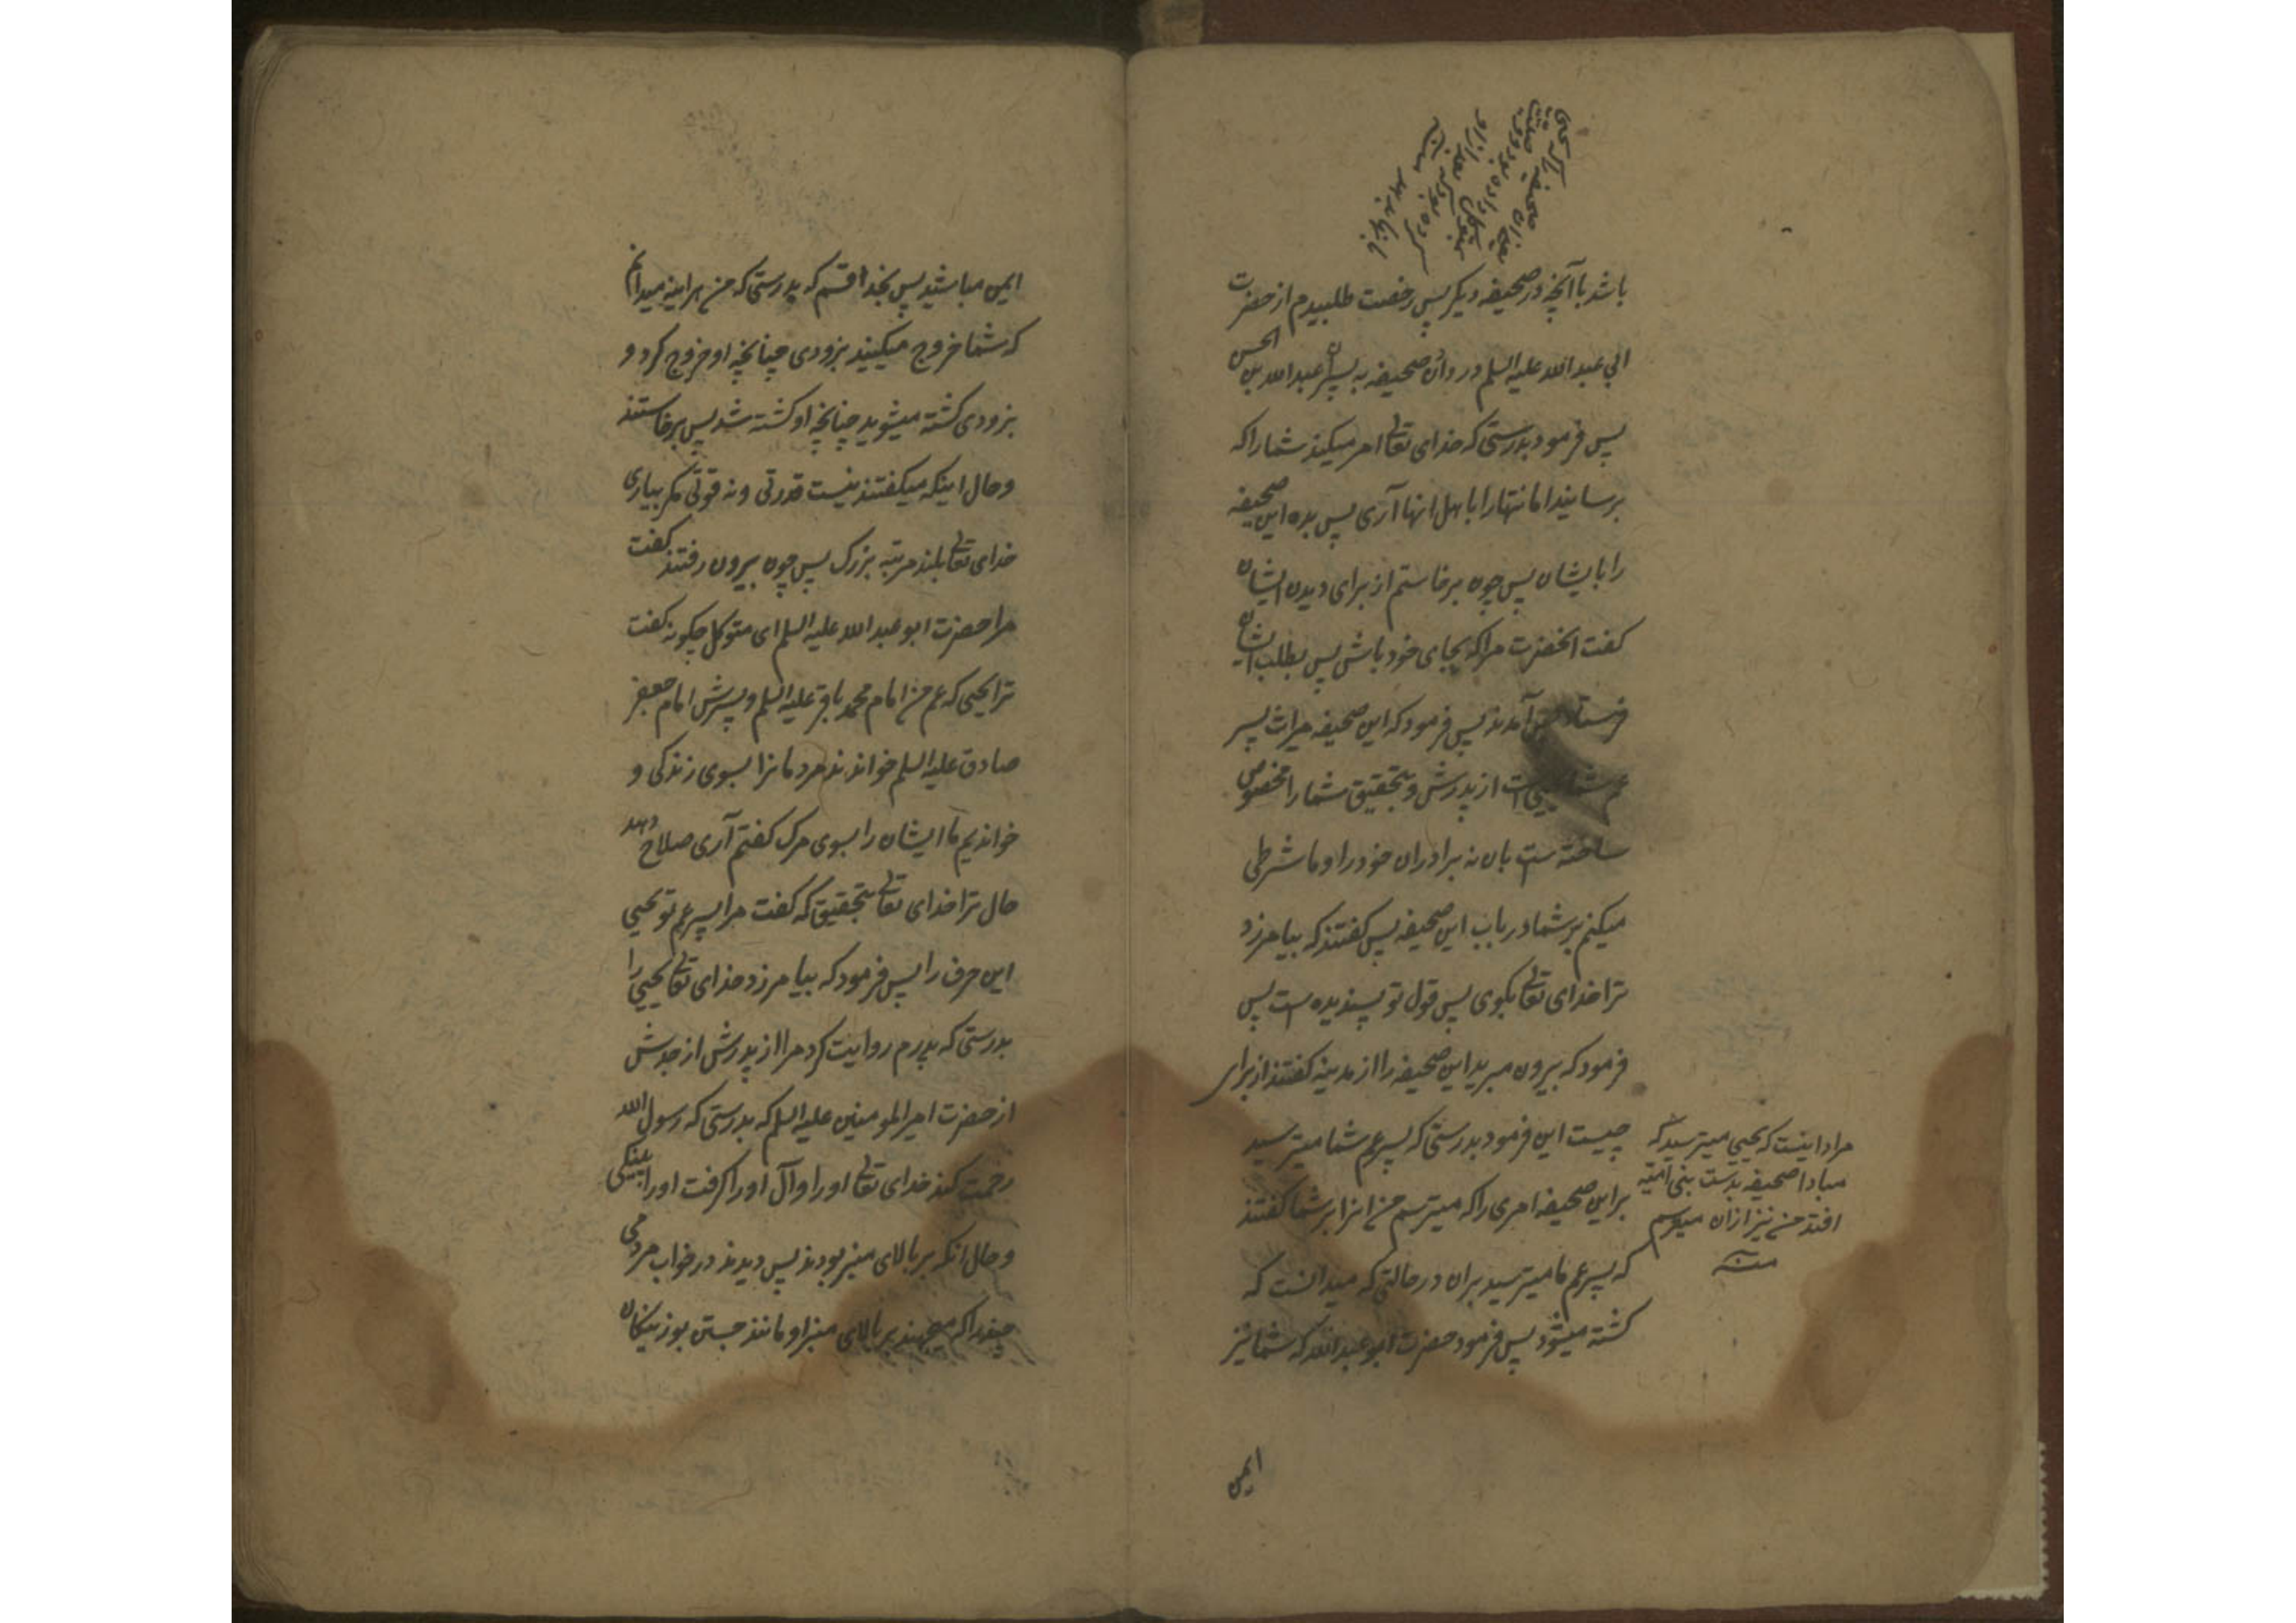 باشد باآنچه در صحیفه دیکر پس رخصت طلبیدم از حضرت
ابی عبدالله علیه السلم در دادن صحیفه به پسران عبدالله بن الحسن
پس فرمود بدرستی که خدای تعالی امر میکند شما را که
برسانید امانتها را باهل انها آری پس بده این صحیفه
را بایشان پس چون برخاستم از برای دیدن ایشان
کفت انحضرت مرا که بجای خود باش پس بطلب ایشان
آمدند پس فرمود که این صحیفه میراث پسر
عم شما یحیی است از پدرش و بتحقیق شما را مخصوص
ساخته ست بان نه برادران خود را و ما شرطی
میکنم بر شما در باب این صحیفه پس کفتند که بیامرزد
ترا خدای تعالی بکوی پس قول تو پسندیده ست پس
فرمود که بیرون مبرید این صحیفه را از مدینه کفتند از برای
چیست این فرمود بدرستی که پسر عم شما میترسید
بر این صحیفه امری را که میترسم من انرا بر شما کفتند
که پسر عم ما میترسید بران در حالتی که میدانست که
کشته میشود پس فرمود حضرت ابو عبدالله که شما نیز
مراد اینست که یحیی میترسید که
مبادا صحیفه بدست بنی امیه
افتد من نیز ازان میترسم
منه
ایمن
ایمن مباشید پس بخدا قسم که بدرستی که من هراینه میدانم
که شما خروج میکنید بزودی چنانچه او خروج کرد و
بزودی کشته میشوید چنانچه او کشته شد پس برخاستند
و حال اینکه میکفتند نیست قدرتی و نه قوتی مکر بیاری
خدای تعالی بلند مرتبه بزرک پس چون بیرون رفتند کفت
مرا حضرت ابو عبدالله علیه السلم ای متوکل چکونه کفت
ترا یحیی که عم من امام محمد باقر علیه السلم و پسرش امام جعفر
صادق علیه السلم خواندند مردمانرا بسوی زندکی و
خواندیم ما ایشان را بسوی مرک کفتم آری صلاح دهد
حال ترا خدای تعالی بتحقیق که کفت مرا پسر عم تو یحیی
این حرف را پس فرمود که بیامرزد خدای تعالی یحیی را
بدرستی که پدرم روایت کرد مرا از پدرش از جدش
از حضرت امیرالمومنین علیه السلم که بدرستی که رسول الله
رحمت کند خدای تعالی او را و آل او را کرفت او را پینکی
و حال انکه بر بالای منبر بودند پس دیدند در خواب مردمی
چند را که میجهند بر بالای منبر او مانند جستن بوزینکان